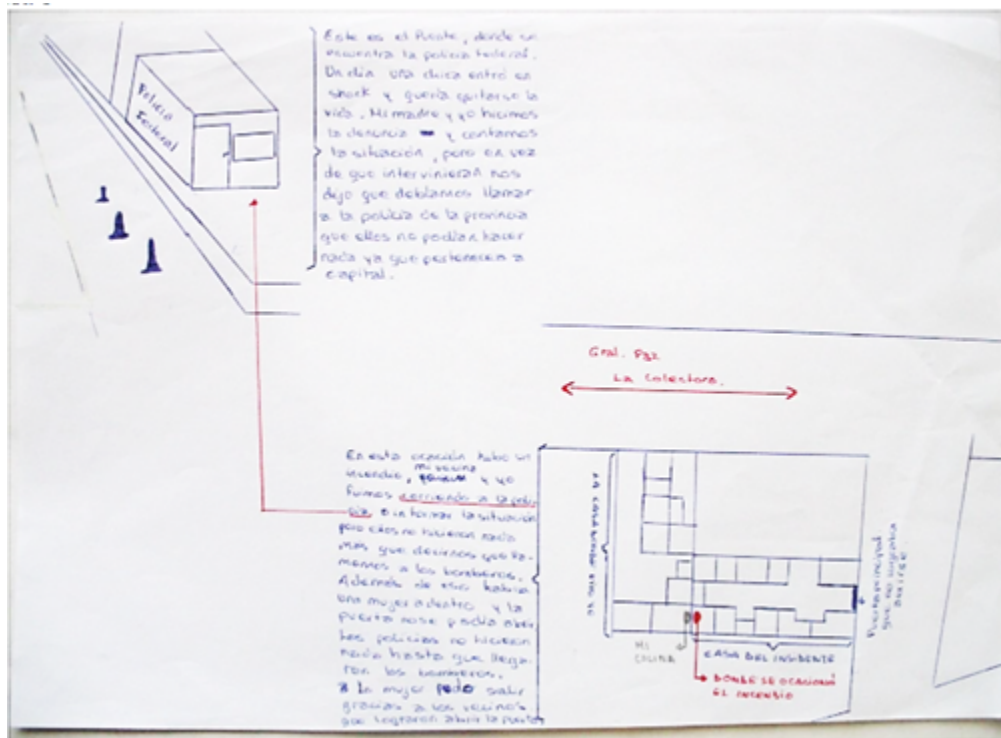 Policia
Federal
Este es el Puente, donde se
encuentra la policia Federal.
Un día una chica entró en
shock y quería quitarse la
vida. Mi madre y yo hicimos
la denuncia y contamos
la situación, pero en vez
de que intervinieran nos
dijo que debíamos llamar
a la policía de la provincia
que ellos no podían hacer
nada ya que pertenecen a
capital.
Gral. Paz
La Colectora.
En esta ocación hubo un
incendio, mi vecina y yo
fuimos corriendo a la poli-
cia a informar la situación
pero ellos no hicieron nada
mas que decirnos que lla-
memos a los bomberos.
Además de eso había
una mujer adentro y la
puerta no se podía abrir
los policias no hicieron
nada hasta que llega-
ron los bomberos.
la mujer pudo salir
gracias a los vecinos
que lograron abrir la puerta
MI
COCINA
CASA DEL INSIDENTE
DONDE SE OCACIONÓ
EL INCENDIO
Puerta principal
que no lograba
abrirse